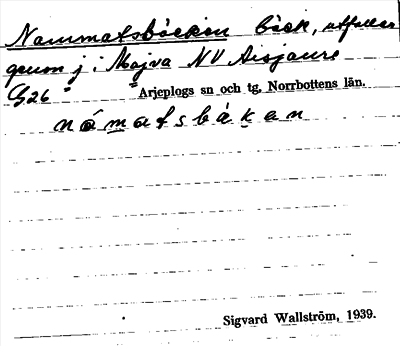 Nammatsbäcken bäck, utfaller
genom j i Majva NV Aisjaure
G26 Arjeplogs sn och tg, Norrbottens län.
nåmatsbäkən
Sigvard Wallström, 1939.